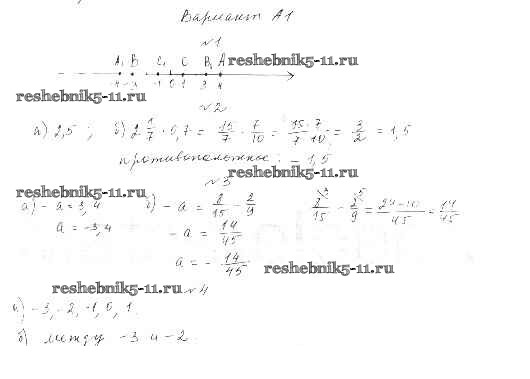 Вариант А1
№1
A₁ B C₁ C B₁ A
reshebnik5-11.ru
-4 -3 -1 0 1 3 4
reshebnik5-11.ru
№2
а) 2,5; б) 2 1/7 · 0,7 = 15/7 · 7/10 = 15·7/7·10 = 3/2 = 1,5
противоположное: -1,5
reshebnik5-11.ru
№3
reshebnik5-11.ru
а) -a = 3,4 б) -a = 8/15 - 2/9 8/15 - 2/9 = 24-10/45 = 14/45
a = -3,4 -a = 14/45
a = -14/45
reshebnik5-11.ru
reshebnik5-11.ru
№4
а) -3, -2, -1, 0, 1.
б) между -3 и -2.